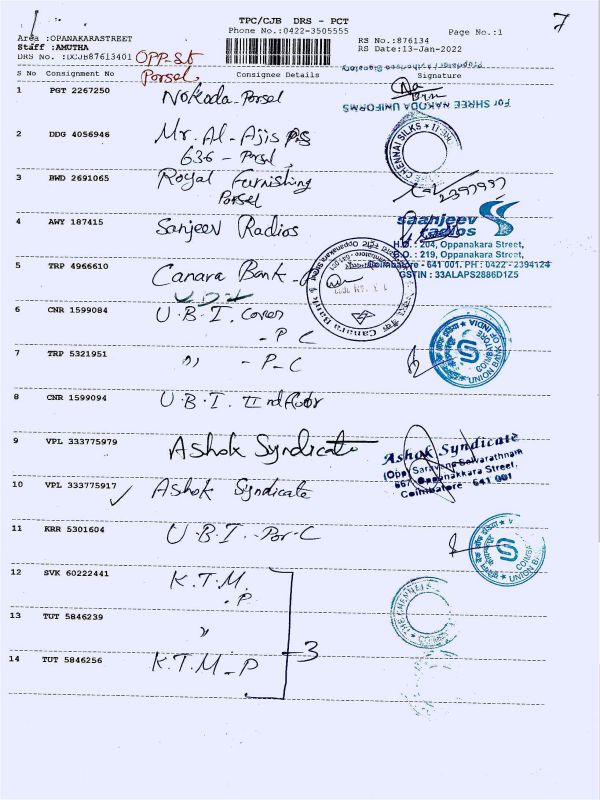 7
TPC/CJB DRS - PCT
Phone No.:0422-3505555
Page No.:1
Area :OPANAKARASTREET
RS No.:876134
Staff :AMUTHA
RS Date:13-Jan-2022
DRS No. :DCJB87613401
OPP-St
Porsel
S No Consignment No Consignee Details Signature
1 PGT 2267250 Nokoda-Porsel
For SHREE NAKODA UNIFORMS
2 DDG 4056946 Mr. Al-Ajis
636 - Porsel
THE CHENNAI SILKS
3 BWD 2691065 Royal Furnishing
Porsel
4 AWY 187415 Sanjeev Radios
saanjeev
radios
H.O. : 204, Oppanakara Street,
B.O. : 219, Oppanakara Street,
Coimbatore - 641 001. PH : 0422 - 2394124
GSTIN : 33ALAPS2886D1Z5
5 TRP 4966610 Canara Bank
6 CNR 1599084 U.B.I. Cover
- P C
7 TRP 5321951 " - P-C
UNION BANK OF INDIA
COIMBATORE
8 CNR 1599094 U.B.I. II nd floor
9 VPL 333775979 Ashok Syndicate
Ashok Syndicate
(Opp) Saravana Selvarathnam
667, Oppanakkara Street,
Coimbatore - 641 001
10 VPL 333775917 Ashok Syndicate
11 KRR 5301604 U.B.I. Por-C
12 SVK 60222441 K.T.M.
. P
THE CHENNAI
13 TUT 5846239 "
3
14 TUT 5846256 K.T.M - P